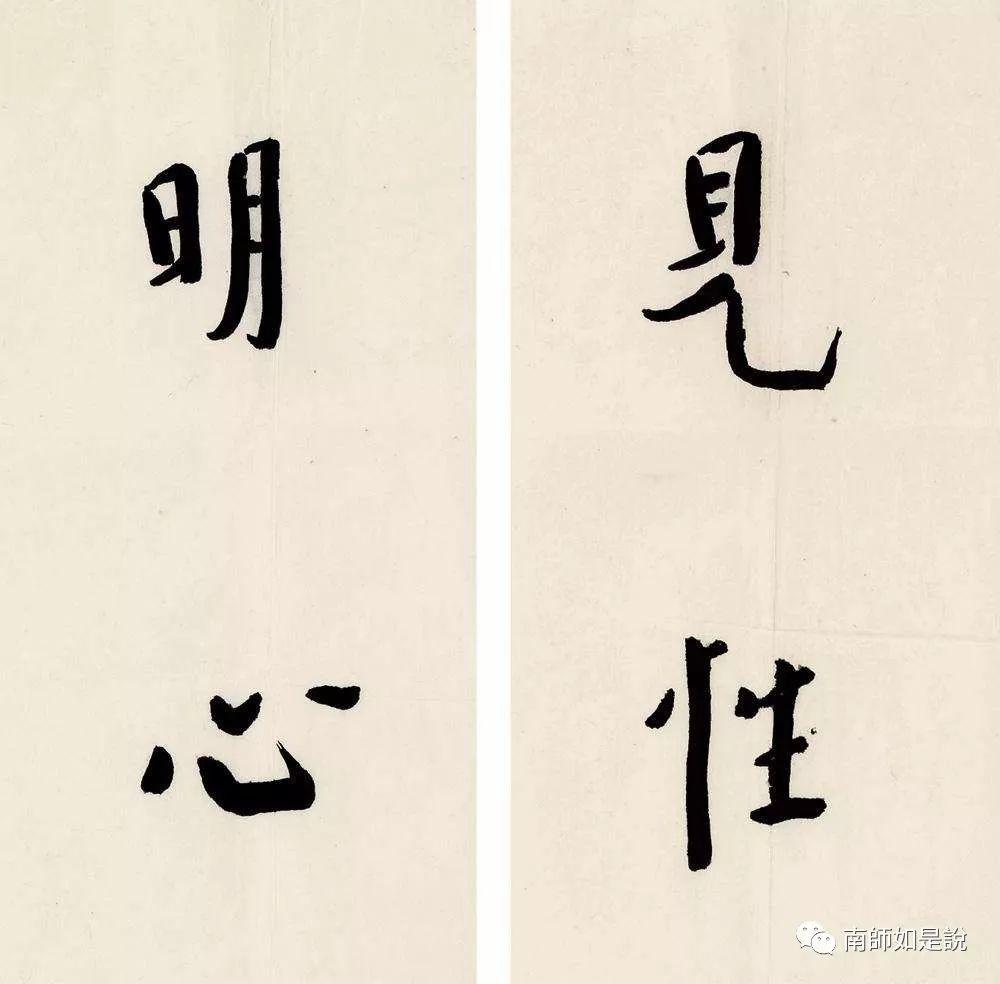 明心
見性
南師如是說